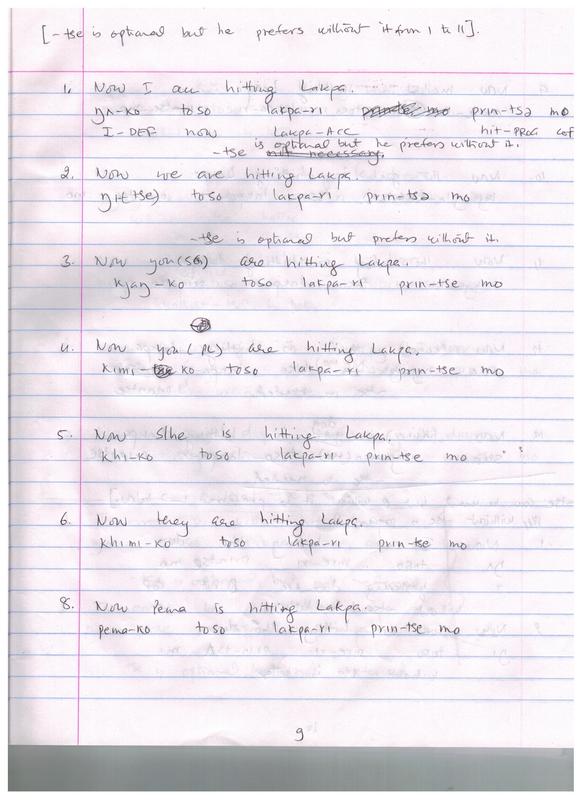 [-tse is optional but he prefers without it from 1 to 11].
1. Now I am hitting Lakpa.
ŋa-ko toso lakpa-ri prin-tsə mo
I-DEF now Lakpa-ACC hit-PROG cop
-tse is optional but he prefers without it.
2. Now we are hitting Lakpa.
ŋi(tse) toso lakpa-ri prin-tsə mo
-tse is optional but prefers without it.
3. Now you(SG) are hitting Lakpa.
kjaŋ-ko toso lakpa-ri prin-tse mo
4. Now you(PL) are hitting Lakpa.
kimi-ko toso lakpa-ri prin-tse mo
5. Now s/he is hitting Lakpa.
khi-ko toso lakpa-ri prin-tse mo
6. Now they are hitting Lakpa.
khimi-ko toso lakpa-ri prin-tse mo
8. Now Pema is hitting Lakpa.
pema-ko toso lakpa-ri prin-tse mo
9